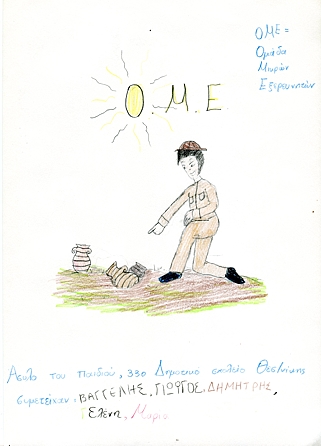 Ο.Μ.Ε.
ΟΜΕ =
Ομάδα
Μικρών
Εξερευνητών
Άσυλο του Παιδιού, 33ο Δημοτικό σχολείο Θεσ/νίκης
συμετείχαν, ΒΑΓΓΕΛΗΣ, ΓΙΩΡΓΟΣ, ΔΗΜΗΤΡΗΣ,
Ελένη, Μαρία